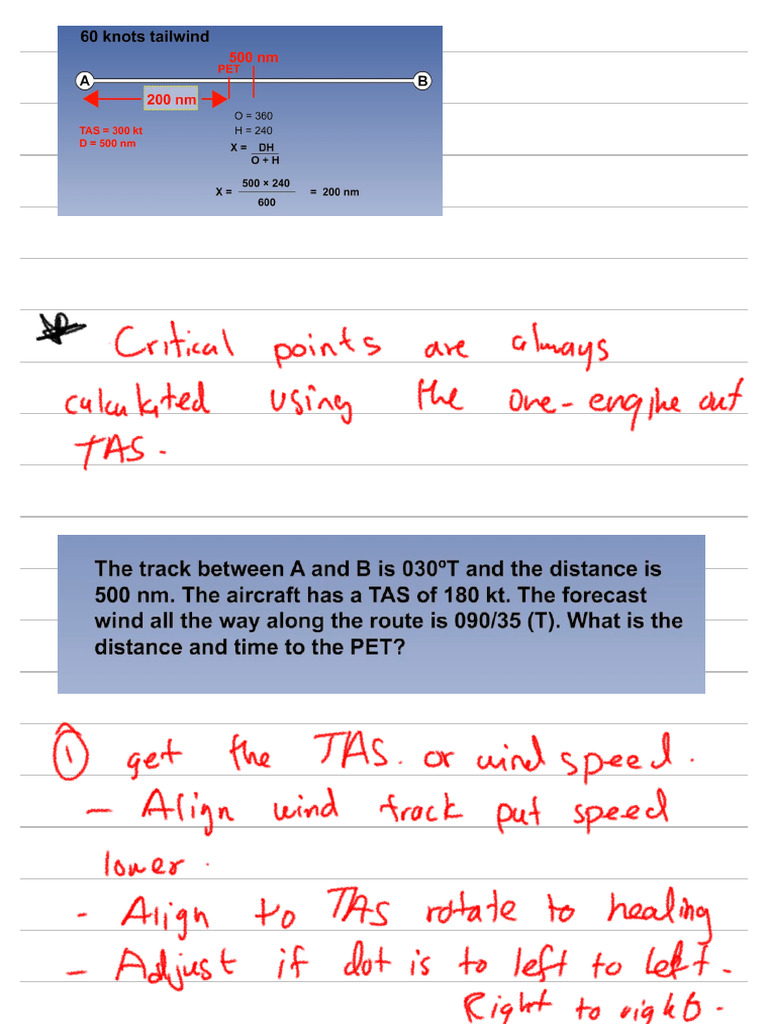 60 knots tailwind
500 nm
PET
A
B
200 nm
TAS = 300 kt
D = 500 nm
O = 360
H = 240
X = DH
O + H
X = 500 × 240
600
= 200 nm
Critical points are always
calculated using the one-engine out
TAS.
The track between A and B is 030ºT and the distance is
500 nm. The aircraft has a TAS of 180 kt. The forecast
wind all the way along the route is 090/35 (T). What is the
distance and time to the PET?
1 get the TAS. or wind speed.
- Align wind track put speed
lower.
- Align to TAS rotate to healing
- Adjust if dot is to left to left.
Right to right.